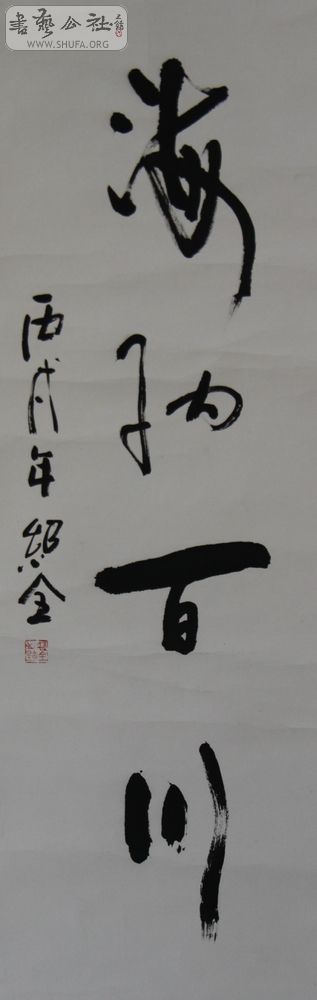 書藝公社
WWW.SHUFA.ORG
海納百川
丙戌年 紹全